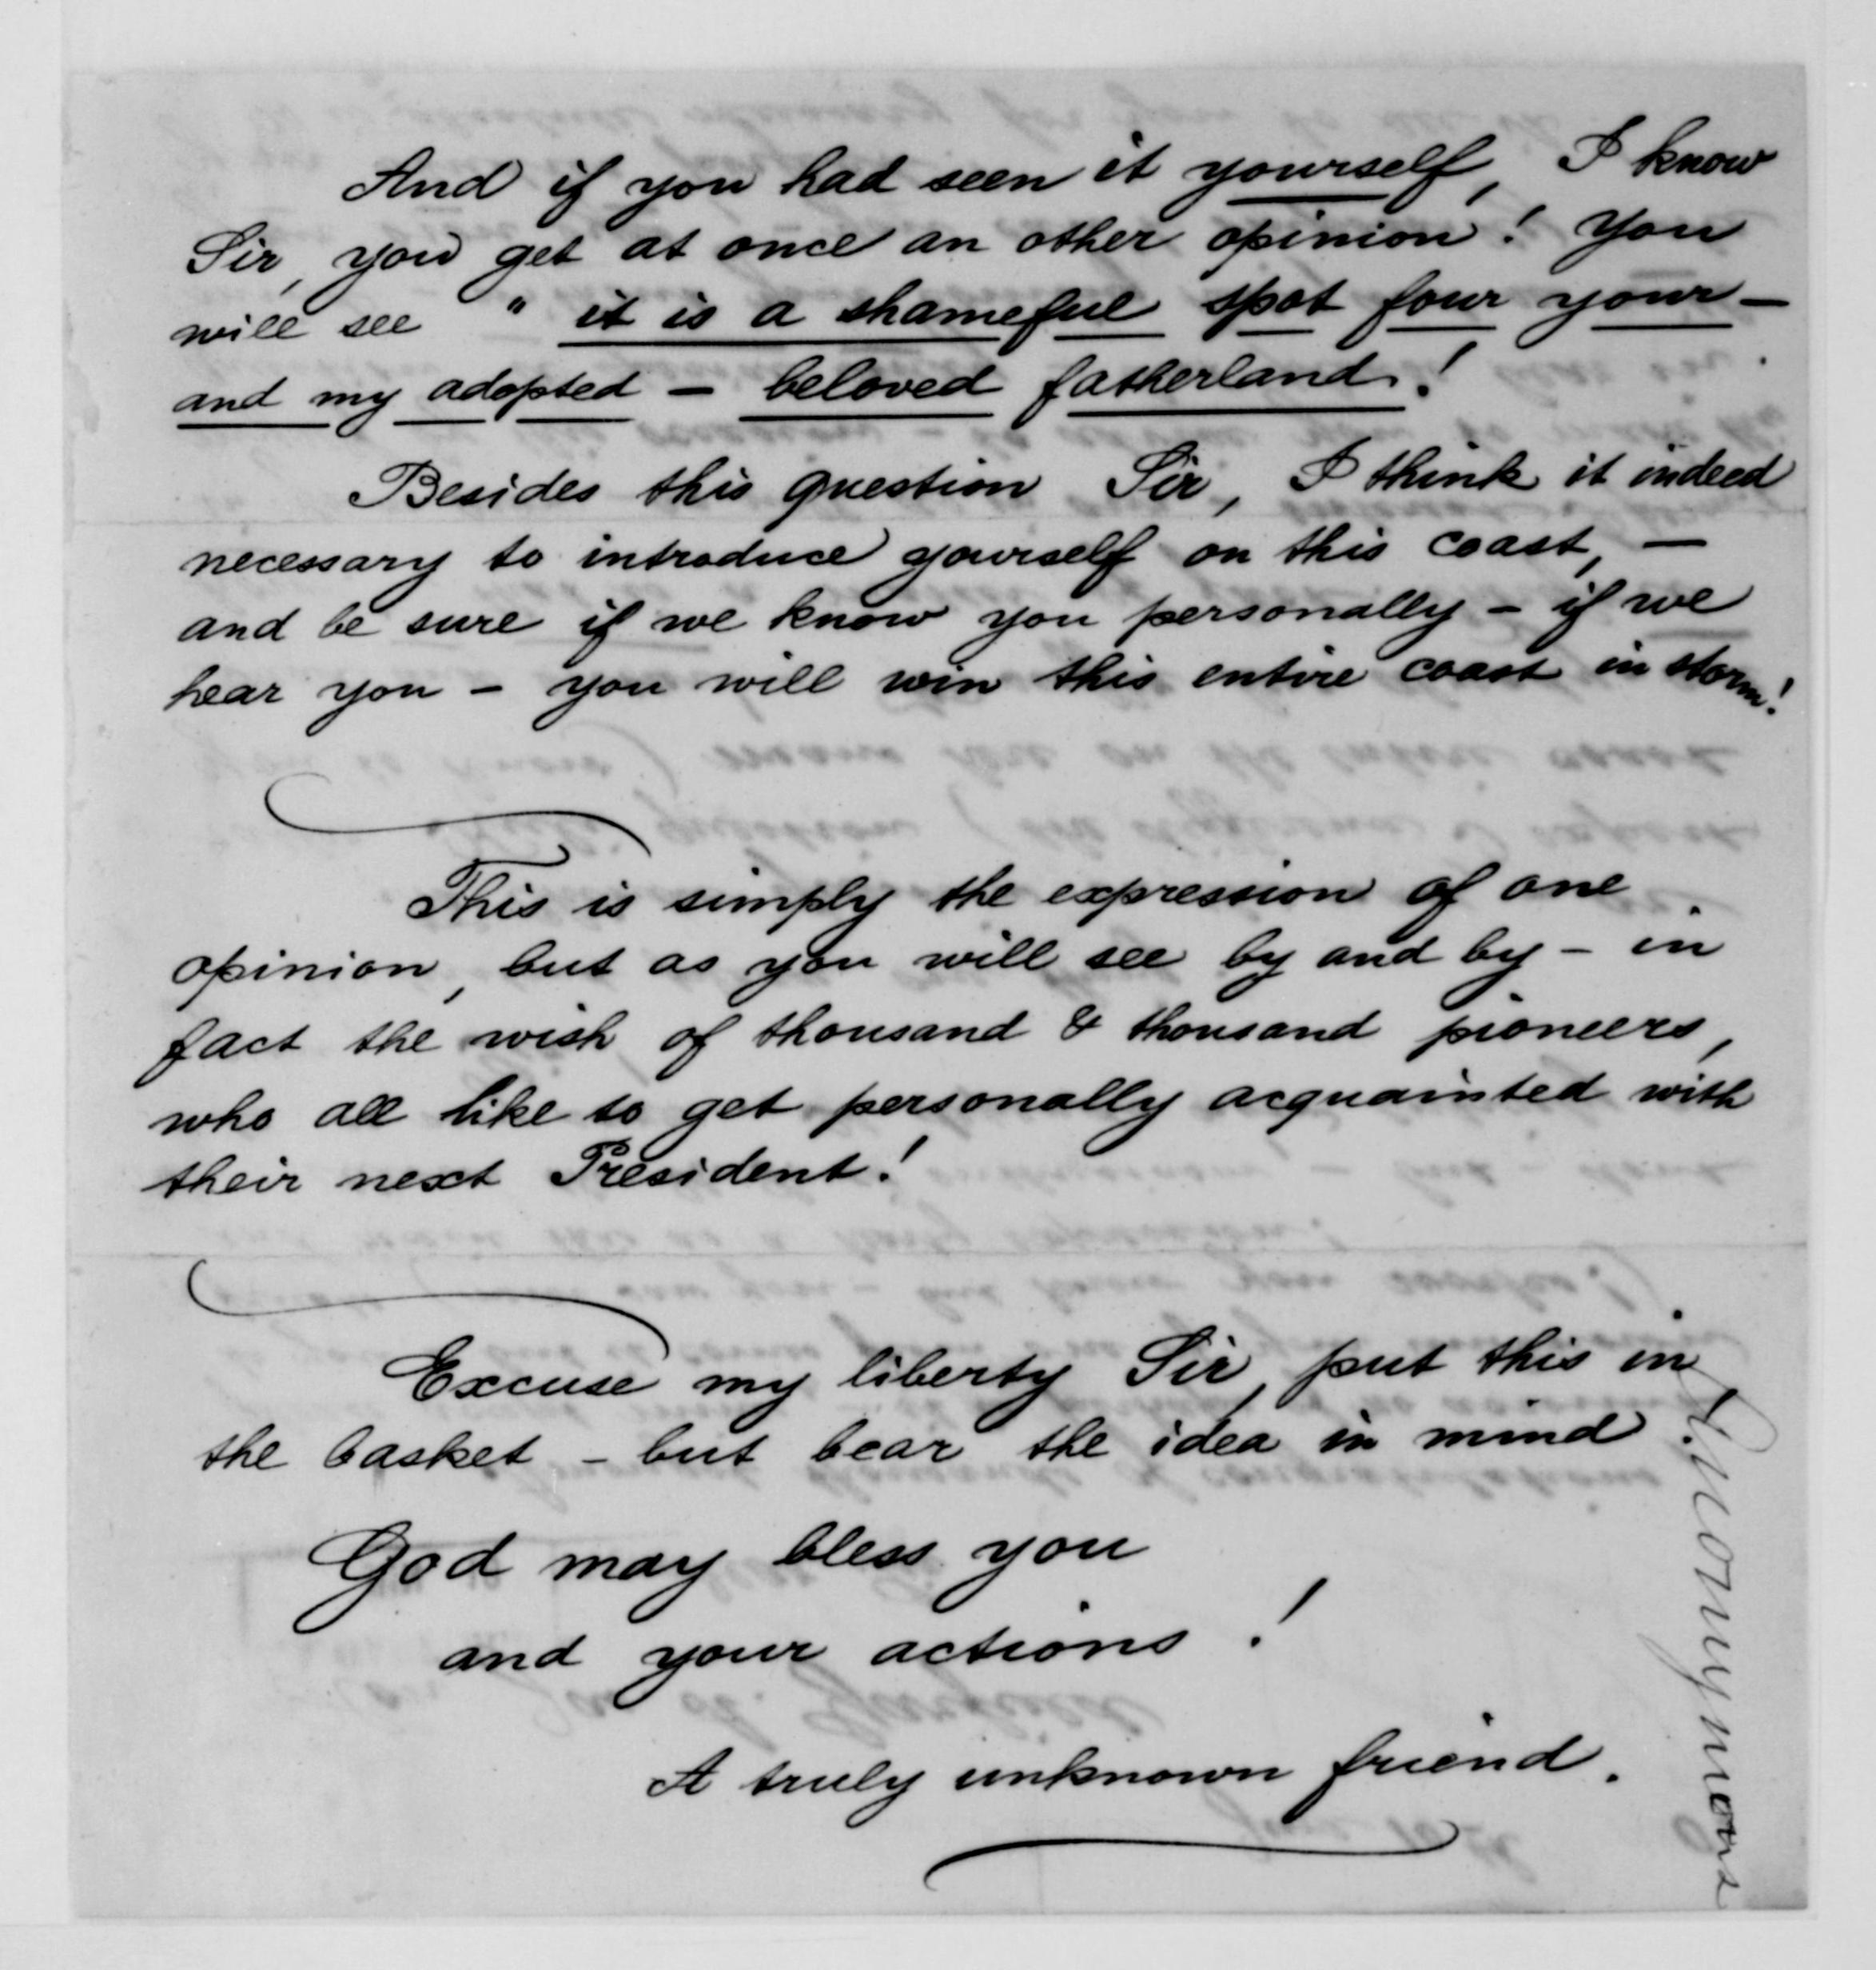 And if you had seen it yourself, I know
Sir, you get at once an other opinion! You
will see " it is a shameful spot four your –
and my adopted – beloved fatherland!
Besides this question Sir, I think it indeed
necessary to introduce yourself on this coast, –
and be sure if we know you personally – if we
hear you – you will win this entire coast in storm!
This is simply the expression of one
opinion, but as you will see by and by – in
fact the wish of thousand & thousand pioneers,
who all like to get personally acquainted with
their next President!
Excuse my liberty Sir, put this in
the basket – but bear the idea in mind
God may bless you
and your actions!
A truly unknown friend.
Annonymous